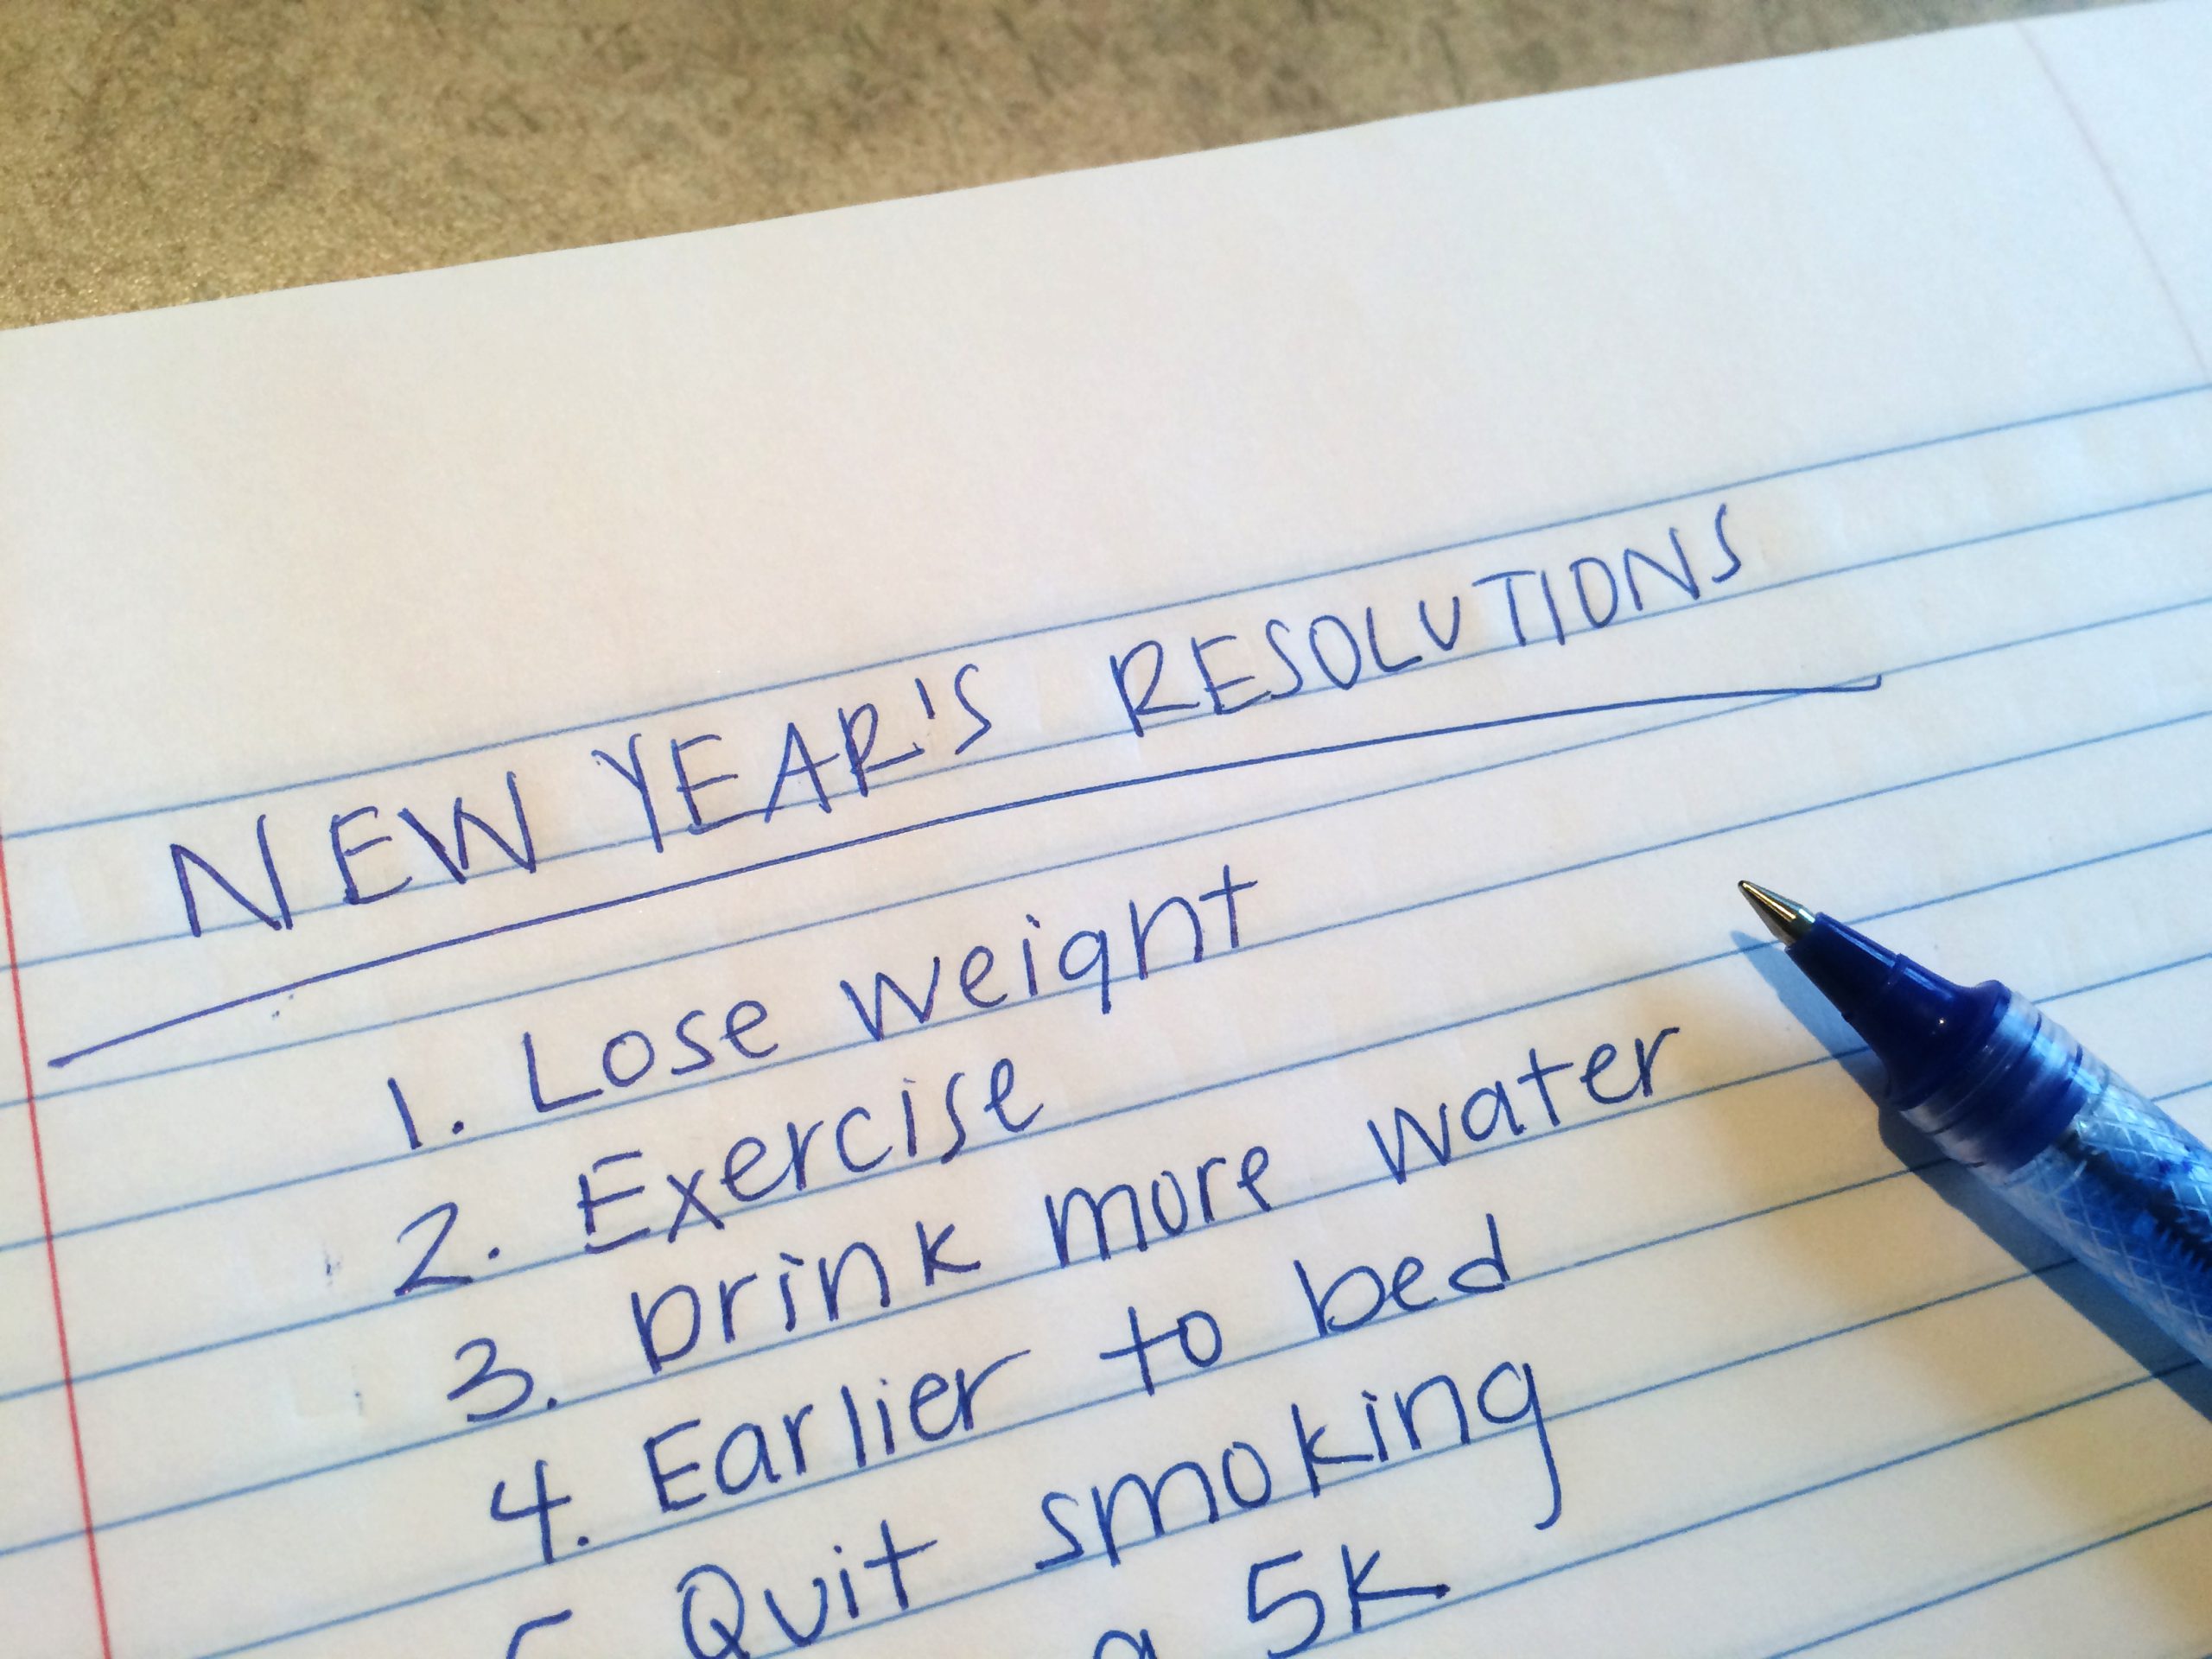 NEW YEAR'S RESOLUTIONS
1. Lose weight
2. Exercise
3. Drink more water
4. Earlier to bed
5 Quit smoking
a 5K